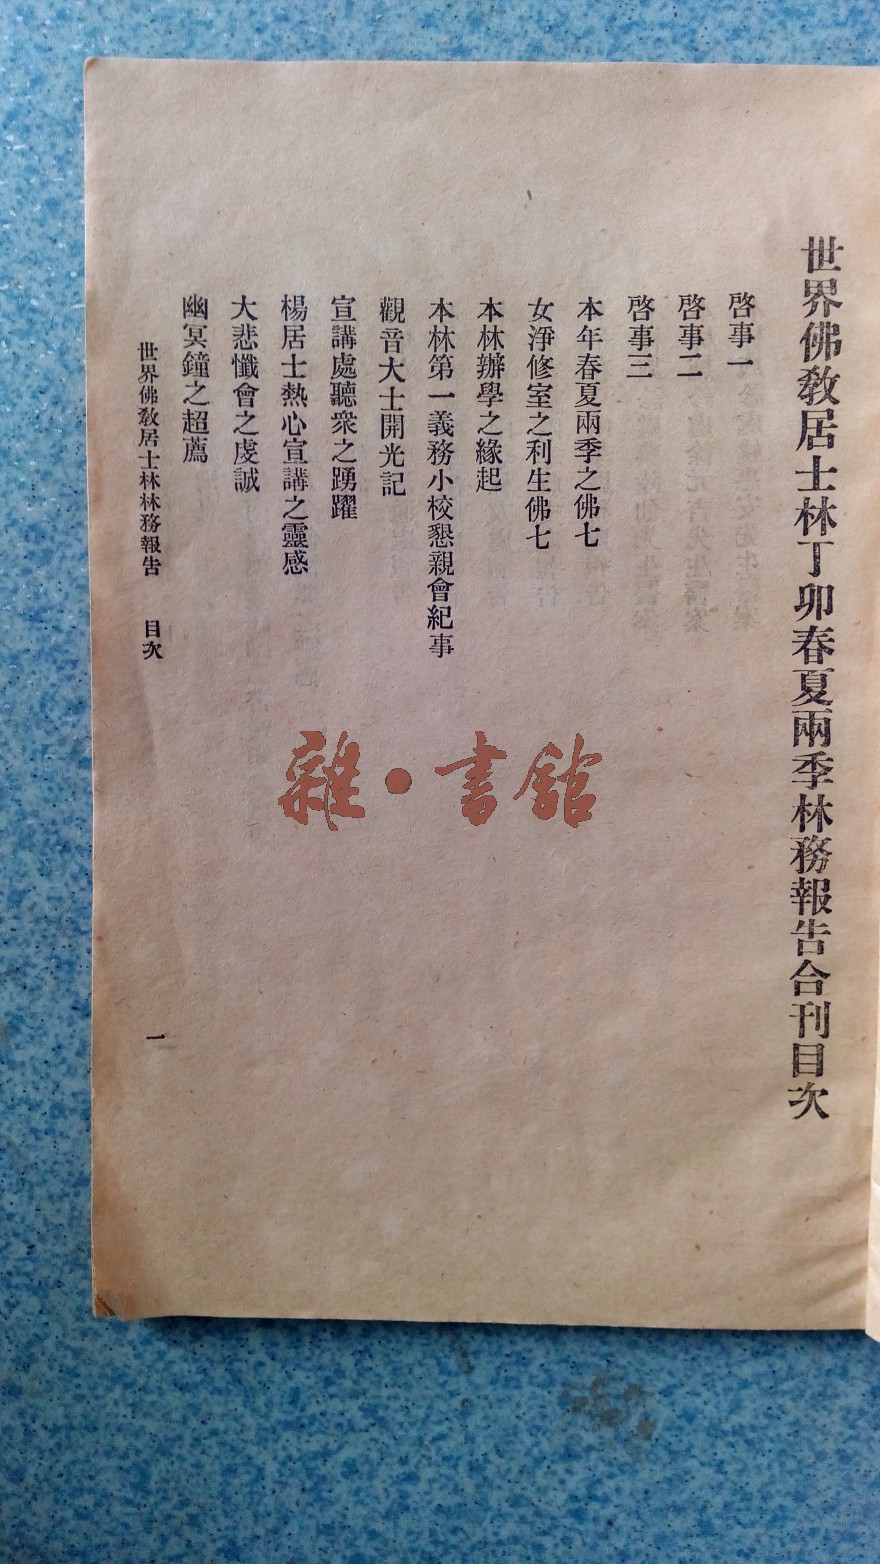 世界佛教居士林丁卯春夏兩季林務報告合刊目次
啓事一
啓事二
啓事三
本年春夏兩季之佛七
女淨修室之利生佛七
本林辦學之緣起
本林第一義務小校懇親會紀事
觀音大士開光記
宣講處聽衆之踴躍
楊居士熱心宣講之靈感
大悲懺會之虔誠
幽冥鐘之超薦
世界佛教居士林林務報告 目次
一
雜·書館